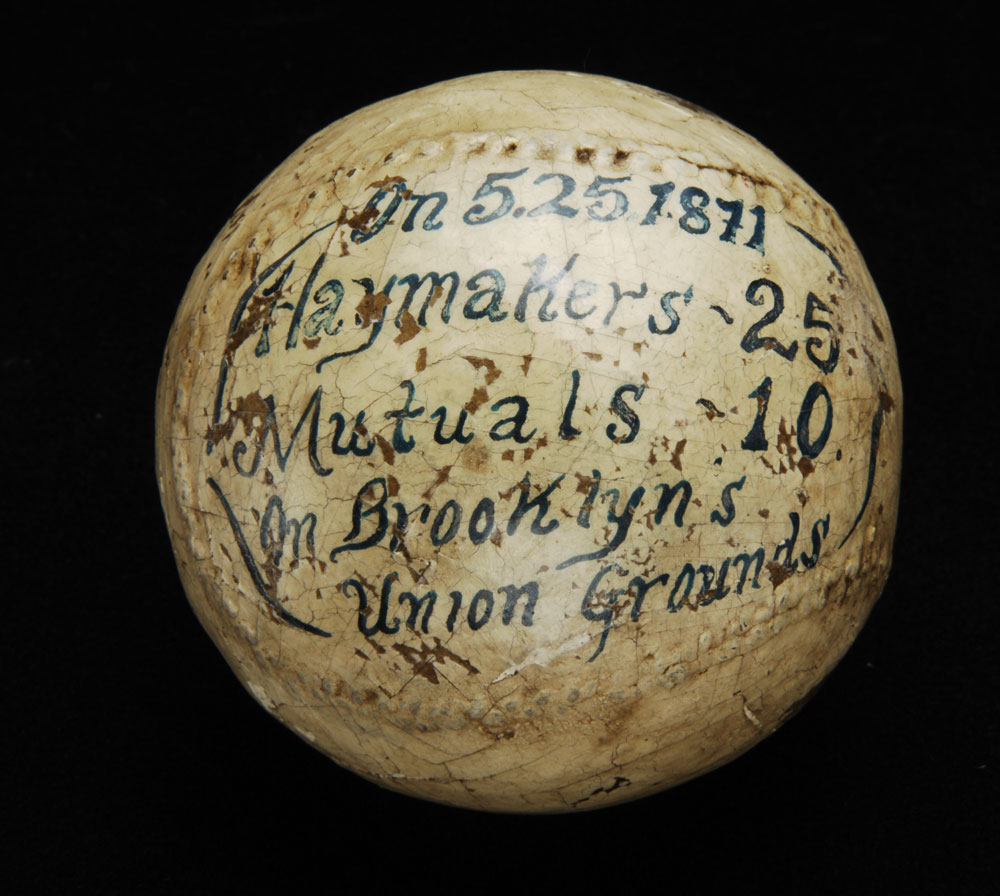 On 5.25.1871
Haymakers - 25
Mutuals - 10.
In Brooklyns
Union Grounds